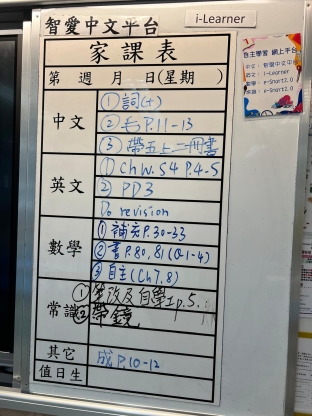 智愛中文平台
i-Learner
家課表
第 週 月 日(星期 )
中文
① 詞(七)
② 毛 P.11-13
③ 帶五上二冊書
英文
① Ch W. S4 P.4-5
② PD3
Do revision
數學
① 補充P.30-33
② 書P.80,81(Q1-4)
③ 自主(Ch7,8)
常識
① 改及自學 p.5.
② 帶鏡
其它
成 P.10-12
值日生
自主學習 網上平台
中文 : 智愛中文平台
英文 : i-Learner
數學 : e-Smart2.0
常識 : e-Smart2.0